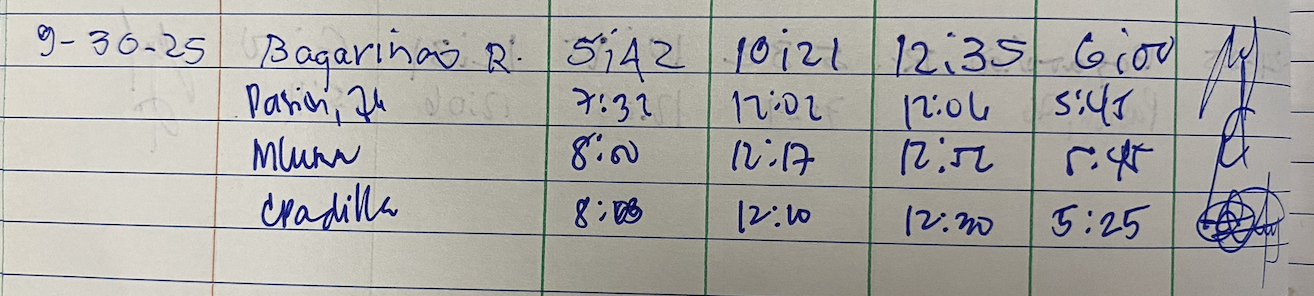 9-30-25 Bagarinao R. 5:42 10:21 12:35 6:00
7:32 12:02 12:04 5:45
8:00 12:17 12:52 5:45
CPadilla 12:10 12:20 5:25